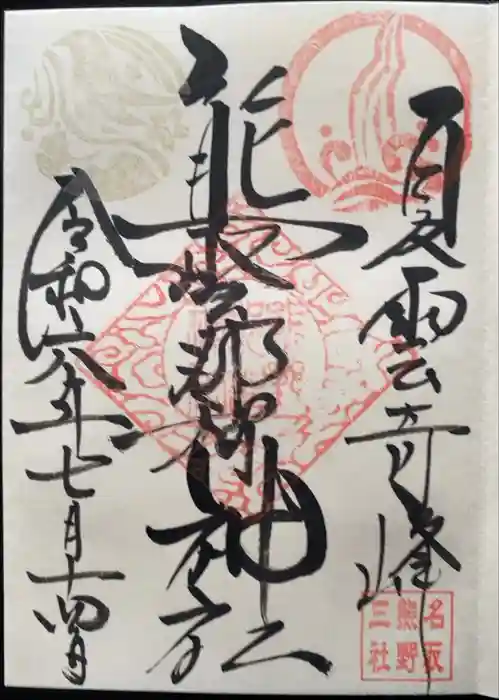 夏雲奇峰
名取
熊野
三社
熊野那智神社
令和六年七月十四日